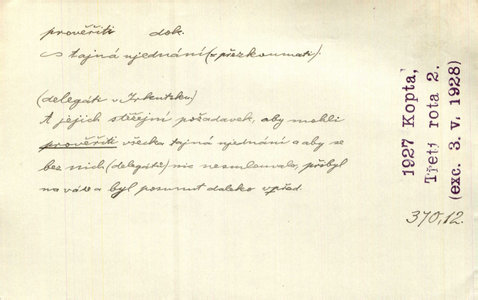 prověřiti dok.
~ tajná ujednání (= přezkoumati).
(delegáti v Irkutsku)
A jejich stěžejní požadavek, aby mohli
prověřiti všecka tajná ujednání a aby se
bez nich (delegátů) nic nesmlouvalo, přibyl
na váze a byl posunut daleko vpřed.
1927 Kopta,
Třetí rota 2.
(exc. 3. V. 1928)
370,12.